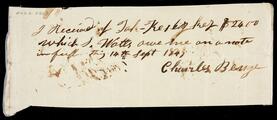 I Received of Joh Kesby Kep $24.00
which S. Watts owe me on a note
in full this 14th Sept 1843
Charles Benge